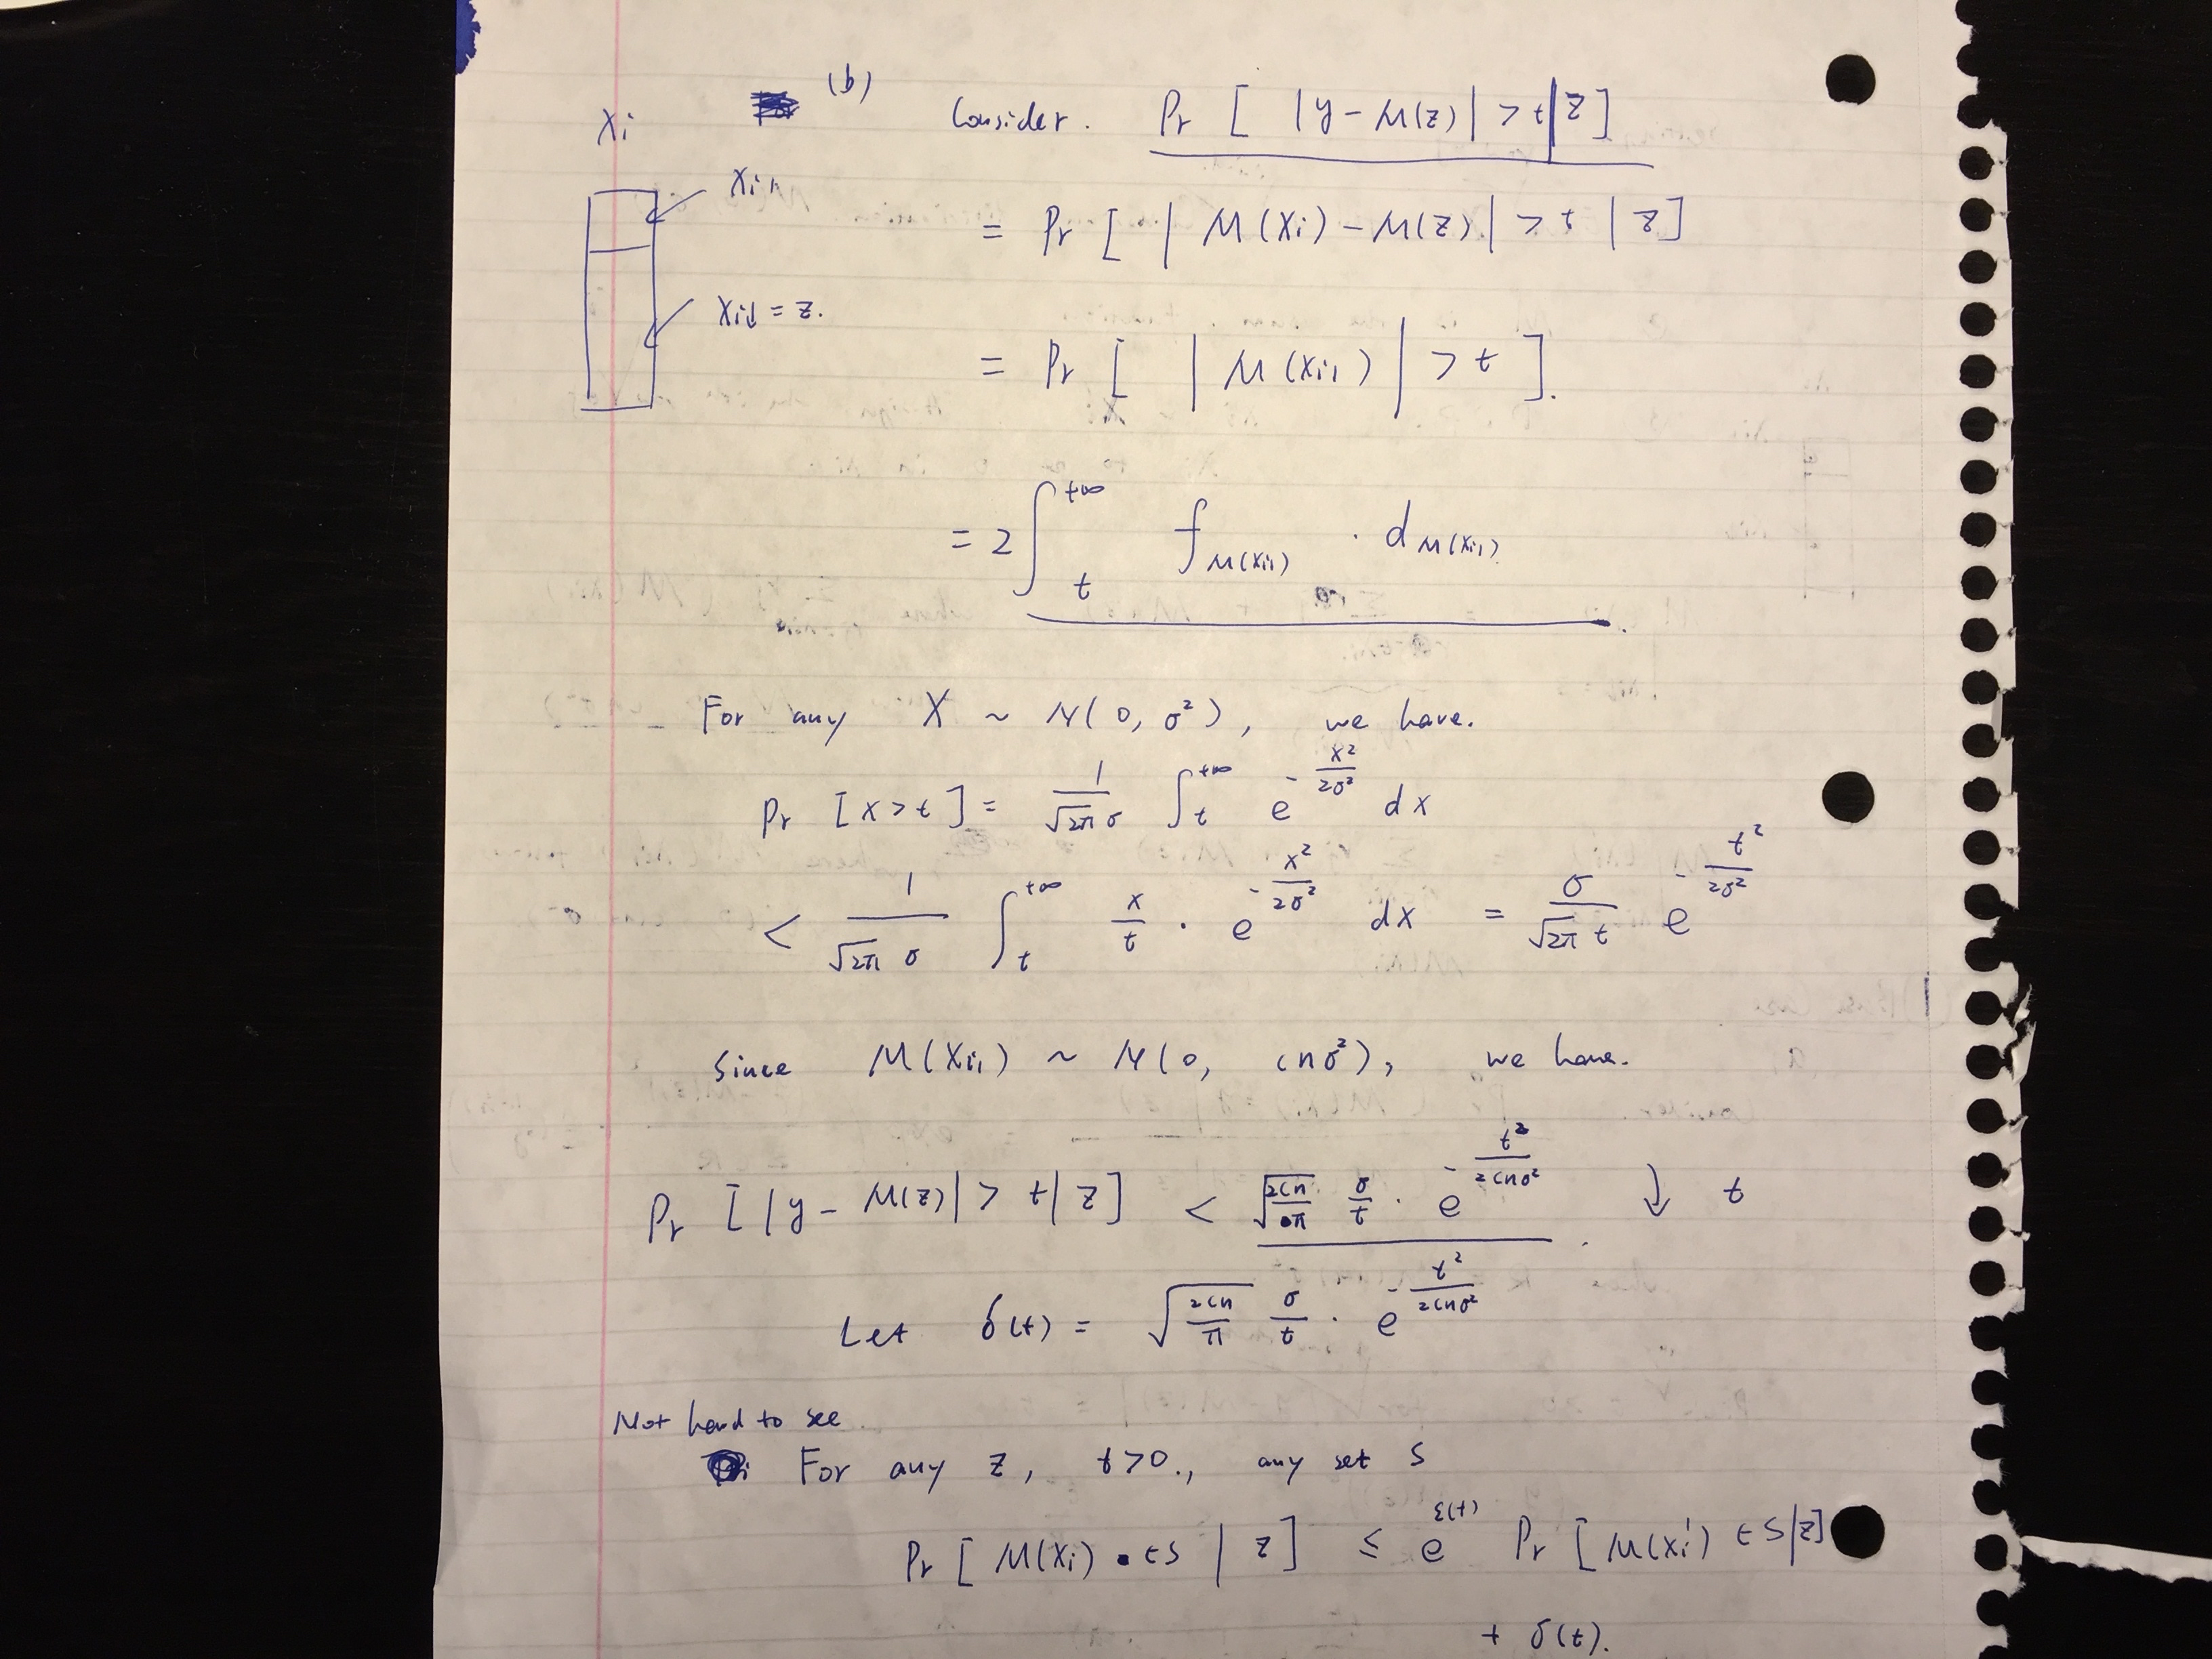 (b) Consider. Pr [ |y - M(z)| > t | z ]
Xi
Xi1
= Pr [ | M(Xi) - M(z) | > t | z ]
Xi↓ = z.
= Pr [ | M(Xi1) | > t ].
= 2 ∫_t^{+∞} f_{M(Xi1)} · d_{M(Xi1)}.
For any X ~ N(0, σ²), we have.
Pr [x > t] = 1/(√(2π) σ) ∫_t^{+∞} e^{-x²/(2σ²)} dx
< 1/(√(2π) σ) ∫_t^{+∞} x/t · e^{-x²/(2σ²)} dx = σ/(√(2π) t) e^{-t²/(2σ²)}
Since M(Xi1) ~ N(0, cnσ²), we have.
Pr [ |y - M(z)| > t | z ] < √(2cn/π) σ/t · e^{-t²/(2cnσ²)}. ↓ t
Let δ(t) = √(2cn/π) σ/t · e^{-t²/(2cnσ²)}
Not hard to see
For any z, t>0., any set S
Pr [ M(Xi) ∈ S | z ] ≤ e^{ε(t)} Pr [ M(Xi') ∈ S | z ]
+ δ(t).